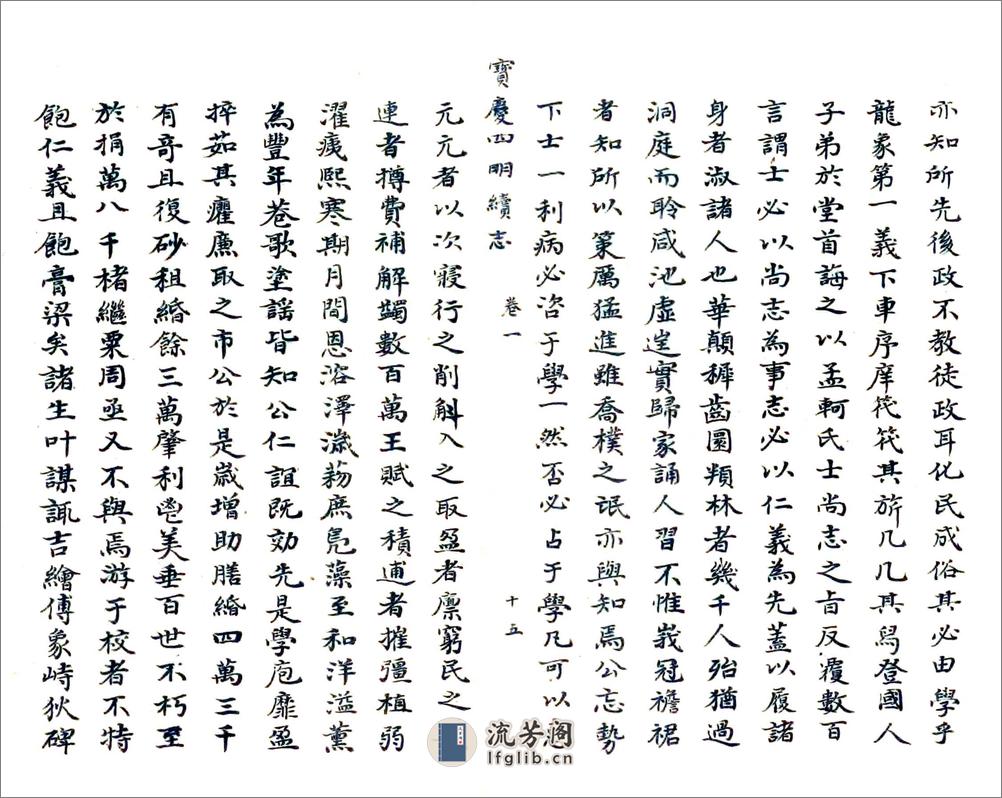 亦知所先後政不教徒政耳化民成俗其必由學乎
龍象第一義下車序庠茷茷其旂几几其舄登國人
子弟於堂首誨之以孟軻氏士尚志之旨反覆數百
言謂士必以尚志為事志必以仁義為先蓋以履諸
身者淑諸人也華顛穉齒園頖林者幾千人殆猶過
洞庭而聆咸池虛逞實歸家誦人習不惟峩冠襜裾
者知所以策厲猛進雖喬樸之氓亦與知焉公忘勢
下士一利病必咨于學一然否必占于學凡可以
寶慶四明續志 卷一 十五
元元者以次寝行之削斛入之取盈者廪窮民之
連者摶費補解蠲數百萬王賦之積逋者摧彊植弱
濯痍熙寒期月間恩溶澤濊薌庶鳧藻至和洋溢薰
為豐年巷歌塗謡皆知公仁誼既効先是學庖靡盈
捽茹其癯廉取之市公於是歲增助膳緡四萬三千
有奇且復砂租緡餘三萬肇利鬯美垂百世不朽至
於捐萬八千楮繼粟周亟又不與焉游于校者不特
飽仁義且飽膏粱矣諸生叶謀諏吉繪傅象峙狄碑
流芳阁
lfglib.cn